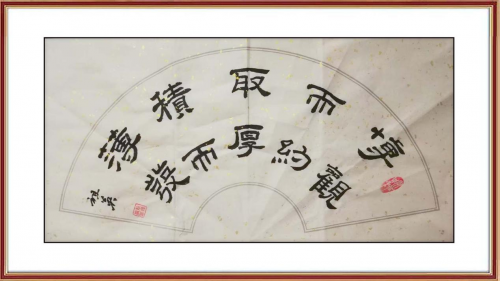 博觀
而約
取厚
積而
薄發